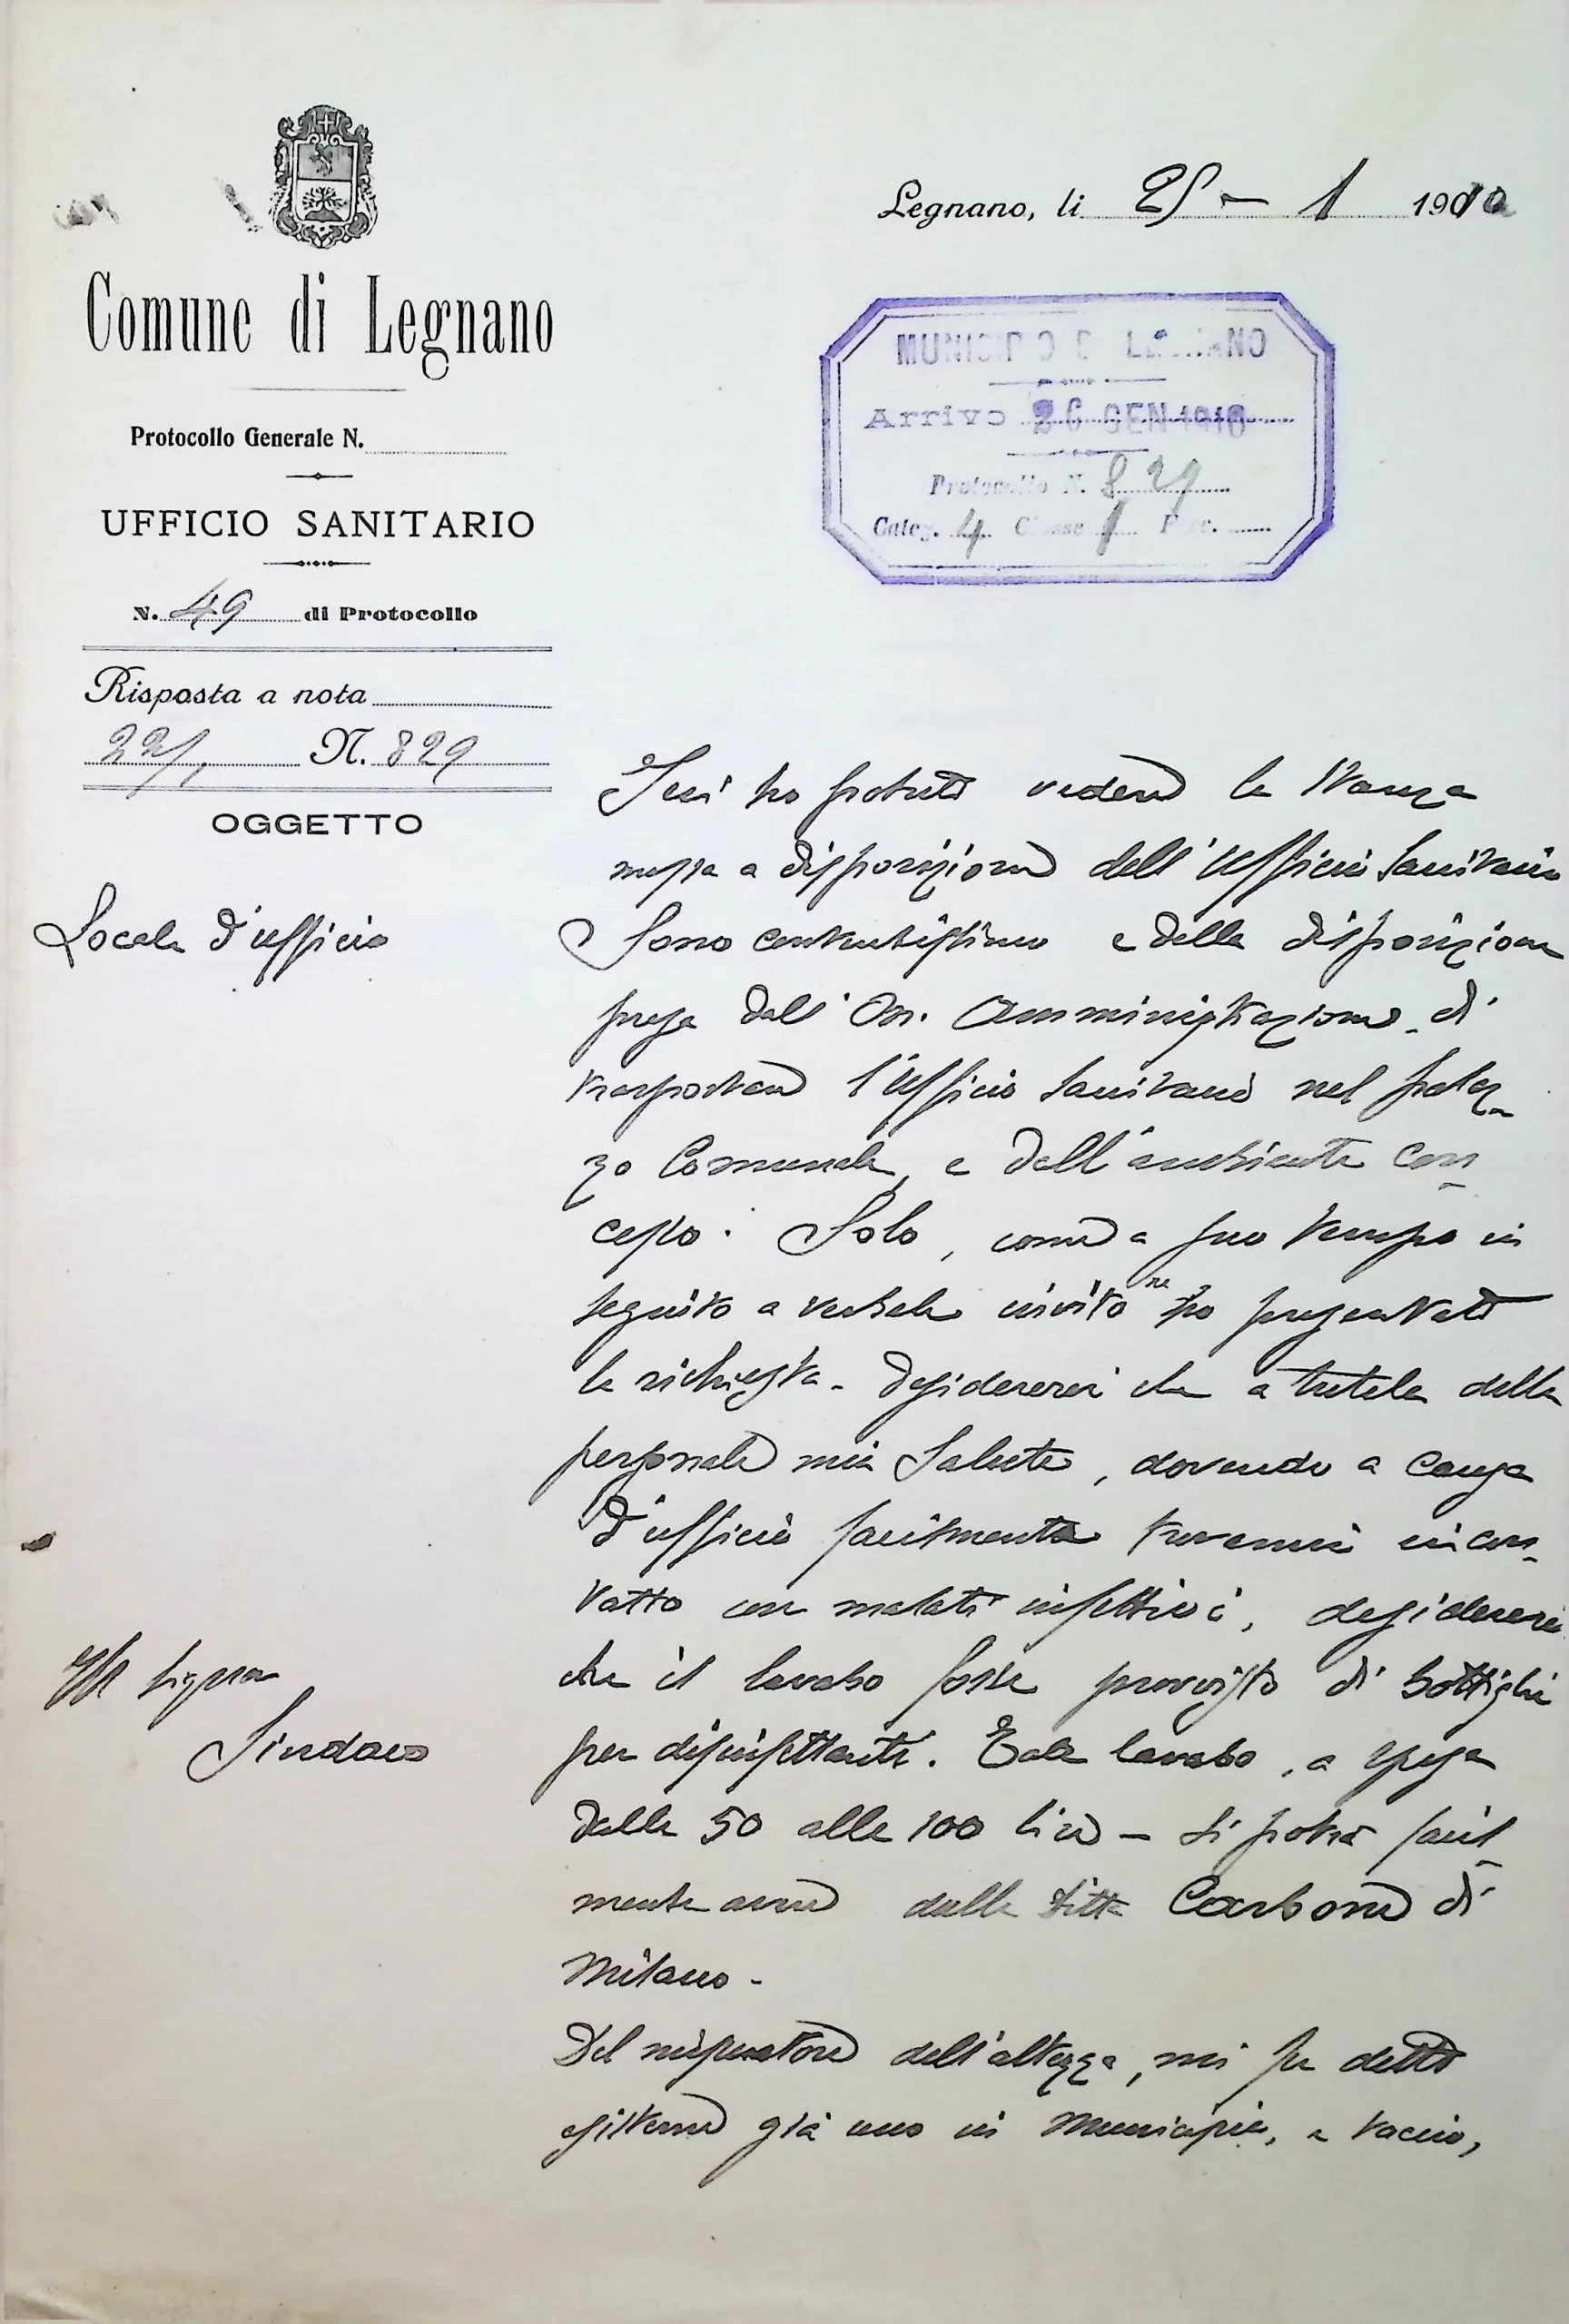 Legnano, li 25 - 1 1910
Comune di Legnano
Protocollo Generale N.
UFFICIO SANITARIO
N. 49 di Protocollo
Risposta a nota
22/1 N. 829
OGGETTO
Locale d'ufficio
Ill Signor
Sindaco
MUNICIPIO DI LEGNANO
Arrivo 26 GEN 1910
Protocollo N. 829
Categ. 4 Classe 1 Fasc.
Ieri ho potuto vedere la stanza
messa a disposizione dell'Ufficio Sanitario
Sono contentissimo e della disposizione
presa dall'On. Amministrazione di
trasportare l'Ufficio Sanitario nel palaz-
zo Comunale, e dell'ambiente con-
cesso. Solo, come a suo tempo in
seguito a verbale invito ne ho presentato
la richiesta - desidererei che a tutela della
personale mia salute, dovendo a causa
d'ufficio facilmente trovarmi in con-
tatto con malati infettivi, desidererei
che il lavabo fosse provvisto di bottiglie
per disinfettanti. Tale lavabo, a spesa
dalle 50 alle 100 lire - si potrà facil-
mente avere dalla ditta Carbone di
Milano -
Del misuratore dell'altezza, mi fu detto
esisterne già uno in Municipio, e